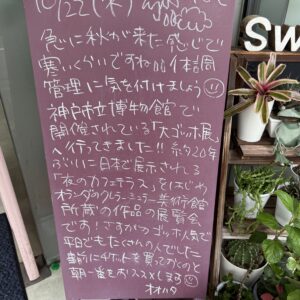 10/22(水)
急に秋が来た感じで
寒いくらいですね 体調
管理に気を付けましょう
神戸市立博物館で
開催されている「大ゴッホ展」
へ行ってきました!! 約20年
ぶりに日本で展示される
「夜のカフェテラス」をはじめ
オランダのクレラー=ミュラー美術館
所蔵の作品の展覧会
です! さすがのゴッホ人気で
平日でもたくさんの人でした
事前にチケットを買っておくのと
朝一番をオススメします
オオハタ
SW